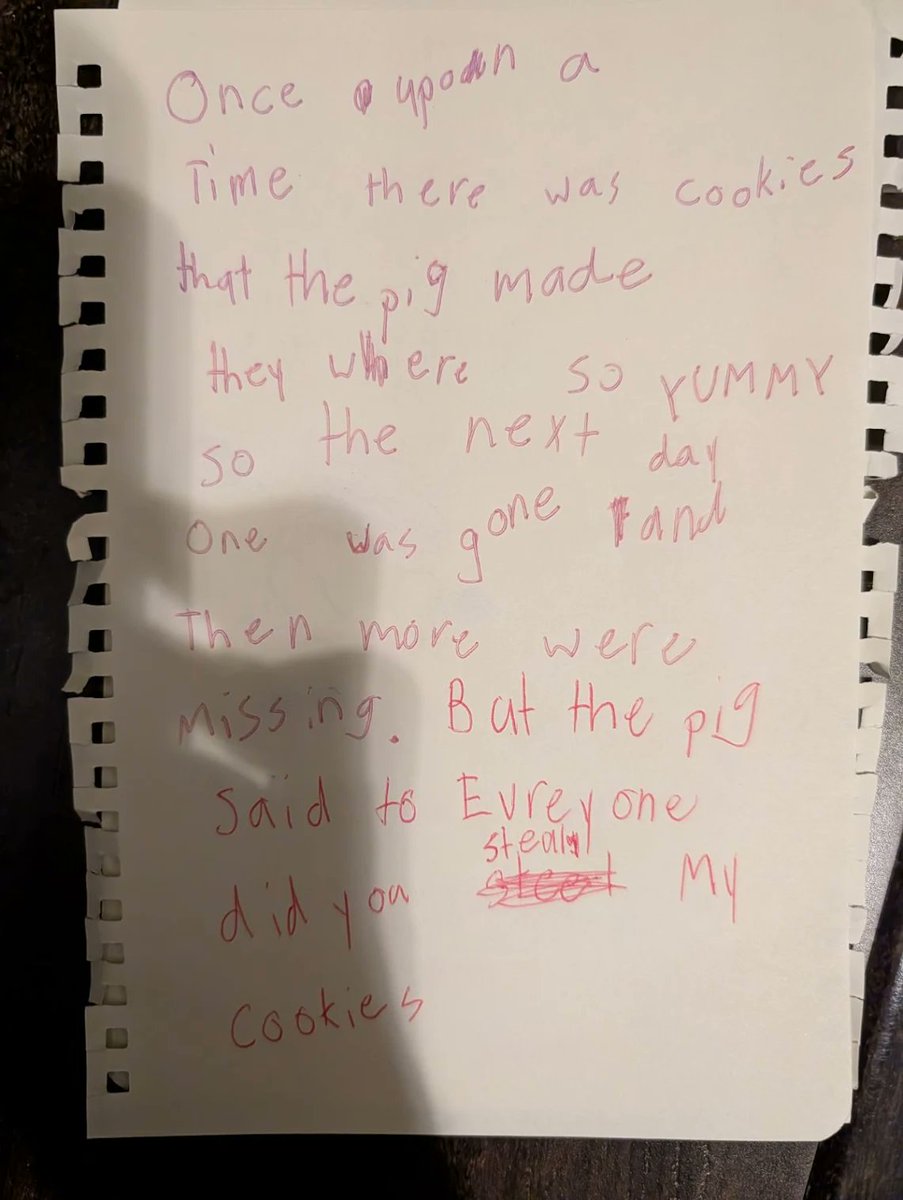 Once upon a
Time there was cookies
that the pig made
they where so YUMMY
so the next day
one was gone and
Then more were
missing. But the pig
said to Evreyone
did you steal My
cookies